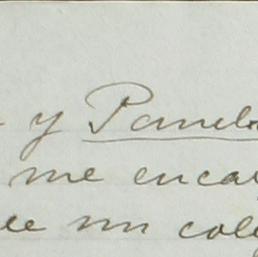 y Pamel
me encar
de un cole